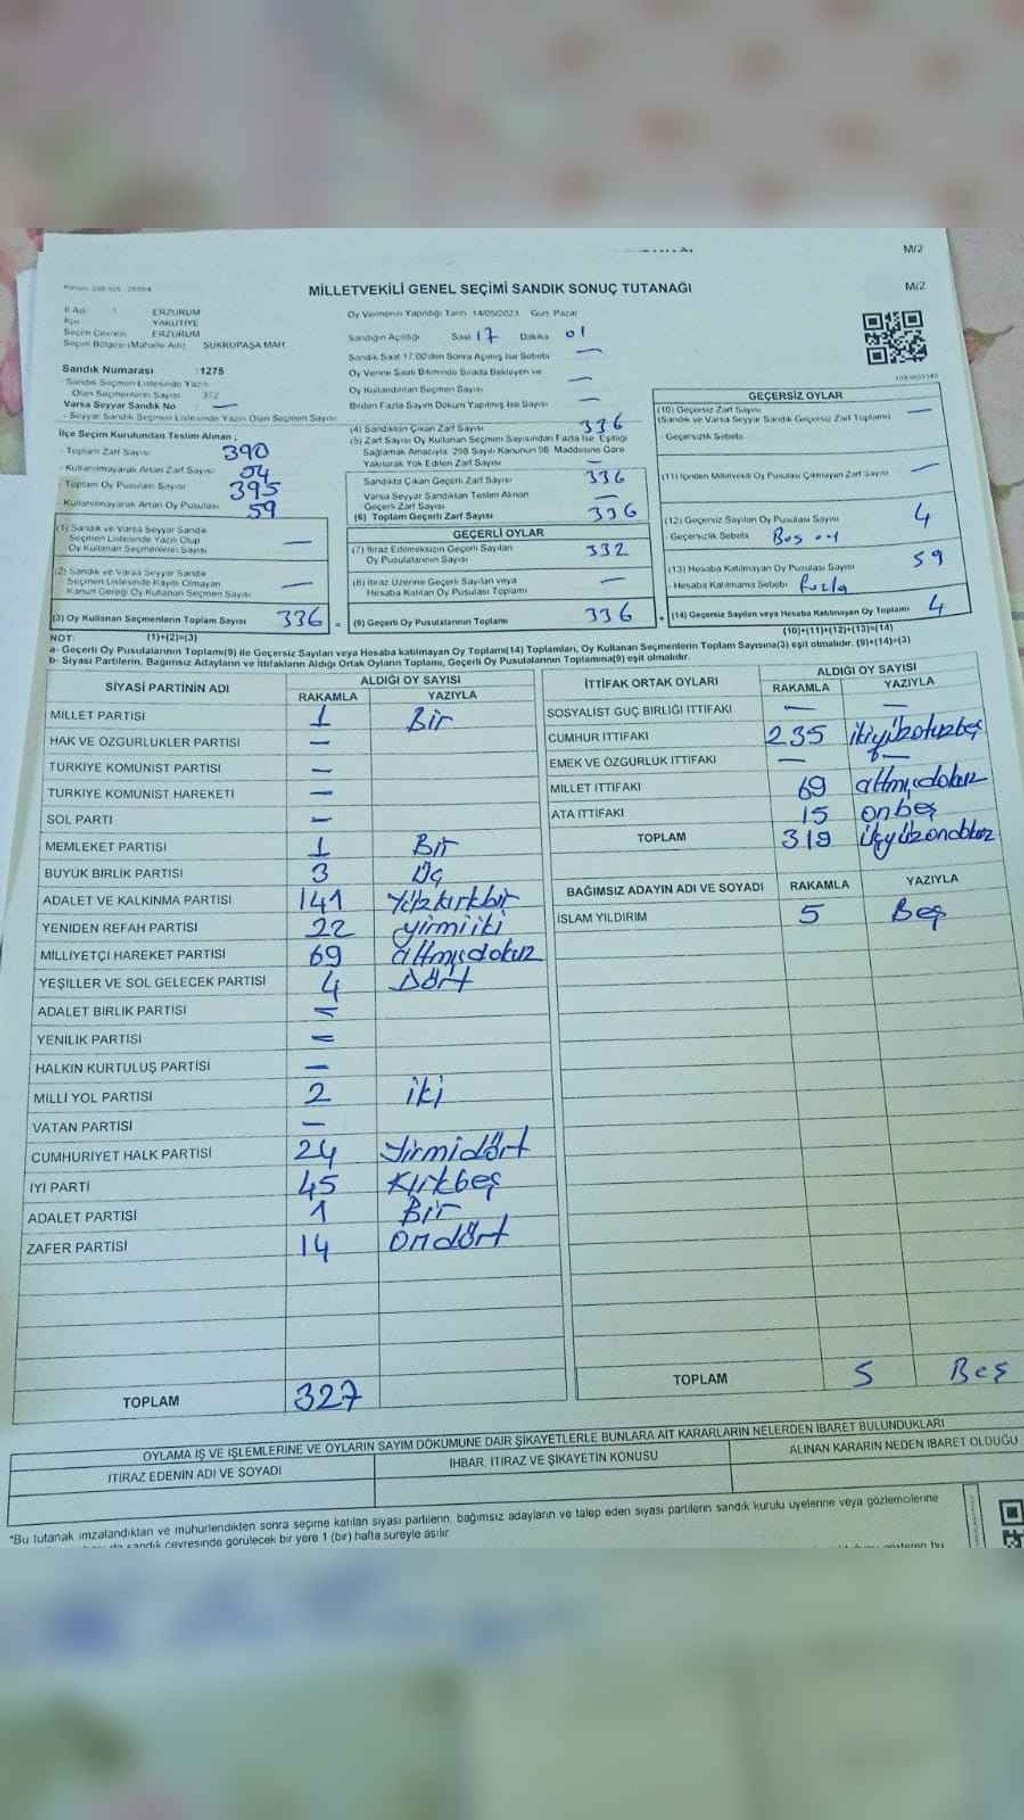 M/2
MİLLETVEKİLİ GENEL SEÇİMİ SANDIK SONUÇ TUTANAĞI
M/2
İl Adı ERZURUM
YAKUTİYE
Seçim Çevresi ERZURUM
Seçim Bölgesi (Mahalle Adı) ŞÜKRÜPAŞA MAH
Sandık Numarası :1275
Sandık Seçmen Listesinde Yazılı
Olan Seçmenlerin Sayısı 372
Varsa Seyyar Sandık No —
- Seyyar Sandık Seçmen Listesinde Yazılı Olan Seçmen Sayısı
İlçe Seçim Kurulundan Teslim Alınan ;
- Toplam Zarf Sayısı 390
- Kullanılmayarak Artan Zarf Sayısı 54
- Toplam Oy Pusulası Sayısı 395
Kullanılmayarak Artan Oy Pusulası 59
(1) Sandık ve Varsa Seyyar Sandık
Seçmen Listesinde Yazılı Olup
Oy Kullanan Seçmenlerin Sayısı —
(2) Sandık ve Varsa Seyyar Sandık
Seçmen Listesinde Kayıtlı Olmayan
Kanun Gereği Oy Kullanan Seçmen Sayısı —
(3) Oy Kullanan Seçmenlerin Toplam Sayısı 336 =
(1)+(2)=(3)
Oy Vermenin Yapıldığı Tarih 14/05/2023 Gün Pazar
Sandığın Açıldığı Saat 17 Dakika 01
Sandık Saat 17:00'den Sonra Açılmış İse Sebebi —
Oy Verme Saati Bitiminde Sırada Bekleyen ve
Oy Kullandırılan Seçmen Sayısı —
Birden Fazla Sayım Döküm Yapılmış İse Sayısı —
(4) Sandıktan Çıkan Zarf Sayısı 336
(5) Zarf Sayısı Oy Kullanan Seçmen Sayısından Fazla İse Eşitliği
Sağlamak Amacıyla 298 Sayılı Kanunun 98. Maddesine Göre
Yakılarak Yok Edilen Zarf Sayısı —
Sandıkta Çıkan Geçerli Zarf Sayısı 336
Varsa Seyyar Sandıktan Teslim Alınan
Geçerli Zarf Sayısı —
(6) Toplam Geçerli Zarf Sayısı 336
GEÇERLİ OYLAR
(7) İtiraz Edilmeksizin Geçerli Sayılan
Oy Pusulalarının Sayısı 332
(8) İtiraz Üzerine Geçerli Sayılan veya
Hesaba Katılan Oy Pusulası Toplamı —
(9) Geçerli Oy Pusulalarının Toplamı 336 +
GEÇERSİZ OYLAR
(10) Geçersiz Zarf Sayısı
(Sandık ve Varsa Seyyar Sandık Geçersiz Zarf Toplamı) —
- Geçersizlik Sebebi
(11) İçinden Milletvekili Oy Pusulası Çıkmayan Zarf Sayısı —
(12) Geçersiz Sayılan Oy Pusulası Sayısı 4
- Geçersizlik Sebebi Boş oy
(13) Hesaba Katılmayan Oy Pusulası Sayısı 59
- Hesaba Katılmama Sebebi Fazla
(14) Geçersiz Sayılan veya Hesaba Katılmayan Oy Toplamı 4
(10)+(11)+(12)+(13)=(14)
NOT:
a- Geçerli Oy Pusulalarının Toplamı(9) ile Geçersiz Sayılan veya Hesaba katılmayan Oy Toplamı(14) Toplamları, Oy Kullanan Seçmenlerin Toplam Sayısına(3) eşit olmalıdır. (9)+(14)=(3)
b- Siyasi Partilerin, Bağımsız Adayların ve İttifakların Aldığı Ortak Oyların Toplamı, Geçerli Oy Pusulalarının Toplamına(9) eşit olmalıdır.
SİYASİ PARTİNİN ADI ALDIĞI OY SAYISI
RAKAMLA YAZIYLA
MİLLET PARTİSİ 1 Bir
HAK VE ÖZGÜRLÜKLER PARTİSİ —
TÜRKİYE KOMÜNİST PARTİSİ —
TÜRKİYE KOMÜNİST HAREKETİ —
SOL PARTİ —
MEMLEKET PARTİSİ 1 Bir
BÜYÜK BİRLİK PARTİSİ 3 Üç
ADALET VE KALKINMA PARTİSİ 141 Yüzkırkbir
YENİDEN REFAH PARTİSİ 22 yirmiiki
MİLLİYETÇİ HAREKET PARTİSİ 69 altmışdokuz
YEŞİLLER VE SOL GELECEK PARTİSİ 4 Dört
ADALET BİRLİK PARTİSİ —
YENİLİK PARTİSİ —
HALKIN KURTULUŞ PARTİSİ —
MİLLİ YOL PARTİSİ 2 iki
VATAN PARTİSİ —
CUMHURİYET HALK PARTİSİ 24 Yirmidört
İYİ PARTİ 45 Kırkbeş
ADALET PARTİSİ 1 Bir
ZAFER PARTİSİ 14 Ondört
TOPLAM 327
İTTİFAK ORTAK OYLARI ALDIĞI OY SAYISI
RAKAMLA YAZIYLA
SOSYALİST GÜÇ BİRLİĞİ İTTİFAKI — —
CUMHUR İTTİFAKI 235 ikiyüzotuzbeş
EMEK VE ÖZGÜRLÜK İTTİFAKI — —
MİLLET İTTİFAKI 69 altmışdokuz
ATA İTTİFAKI 15 onbeş
TOPLAM 319 Üçyüzondokuz
BAĞIMSIZ ADAYIN ADI VE SOYADI RAKAMLA YAZIYLA
İSLAM YILDIRIM 5 Beş
TOPLAM 5 Beş
OYLAMA İŞ VE İŞLEMLERİNE VE OYLARIN SAYIM DÖKÜMÜNE DAİR ŞİKAYETLERLE BUNLARA AİT KARARLARIN NELERDEN İBARET BULUNDUKLARI
İTİRAZ EDENİN ADI VE SOYADI İHBAR, İTİRAZ VE ŞİKAYETİN KONUSU ALINAN KARARIN NEDEN İBARET OLDUĞU
*Bu tutanak imzalandıktan ve mühürlendikten sonra seçime katılan siyasi partilerin, bağımsız adayların ve talep eden siyasi partilerin sandık kurulu üyelerine veya gözlemcilerine
sandık çevresinde görülecek bir yere 1 (bir) hafta süreyle asılır